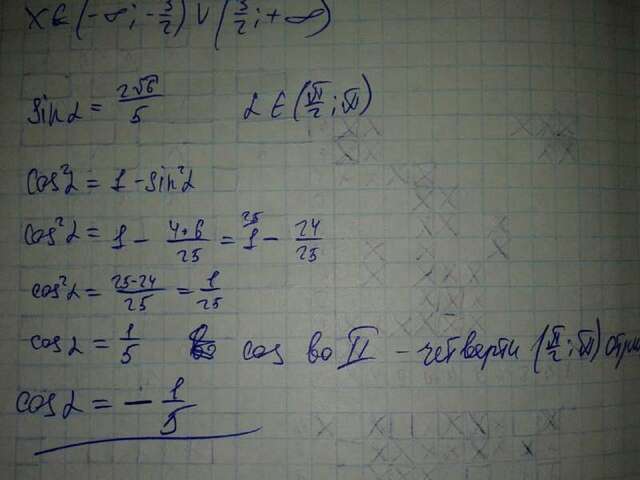 x ∈ (-∞; -3/2) ∪ (3/2; +∞)
sin α = 2√6/5 α ∈ (π/2; π)
cos²α = 1 - sin²α
cos²α = 1 - 4·6/25 = 1 25 - 24/25
cos²α = 25-24/25 = 1/25
cos α = 1/5 cos во II - четверти (π/2; π) отри
cos α = - 1/5